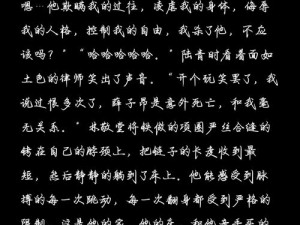 嗯…他欺瞒我的过往，凌虐我的身体，侮辱
我的人格，控制我的自由，我杀了他，不应
该吗？""哈哈哈哈哈。"陆青时看着面如
土色的律师笑出了声音。"开个玩笑罢了，我
说过很多次了，薛子昂是意外死亡，和我毫
无关系。"林敬堂将铁做的项圈严丝合缝的
铐在自己的脖颈上，把链子的长度收到最
短，然后静静的躺到了床上。他能感受到脉
搏的每一次跳动，每一次翻身都受到严格的